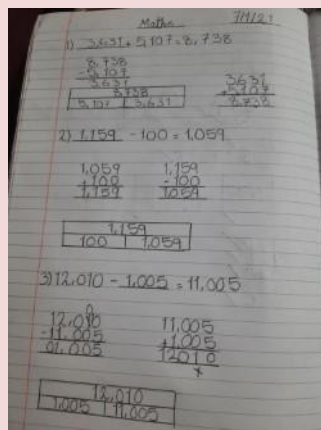 Maths 7/1/21
1) 3,631 + 5,107 = 8,738
8,738
- 5,107
3,631
3631
+ 5,107
8,738
8,738
5,107 3,631
2) 1,159 - 100 = 1,059
1,059 1,159
+ 100 - 100
1,159 1,059
1,159
100 1,059
3) 12,010 - 1,005 = 11,005
12,010 11,005
- 11,005 + 1,005
01,005 12010
12,010
1,005 11,005